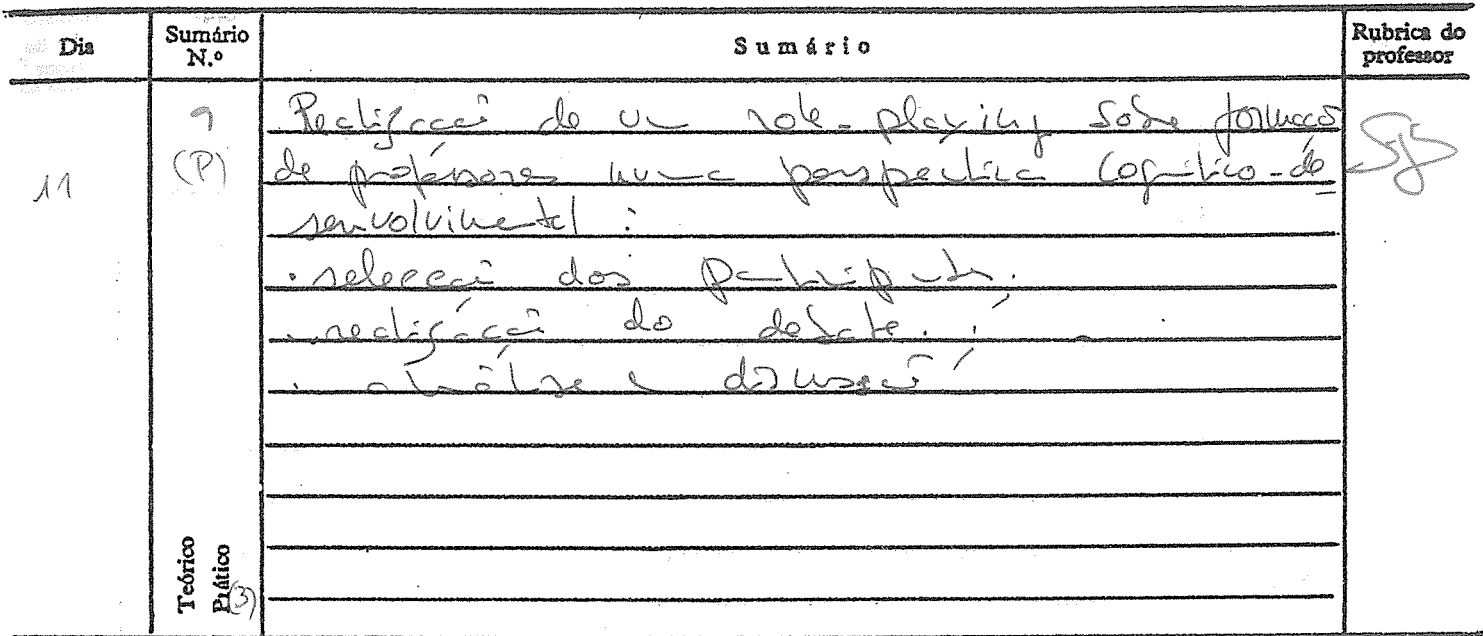 Dia
Sumário N.º
Sumário
Rubrica do professor
11
9
(P)
Realização de um role-playing sobre formação
de professores numa perspectiva cognitico-de
senvolvimental :
. selecção dos participantes.
. realização do debate.
. análise e discussão
Teórico
Prático (3)